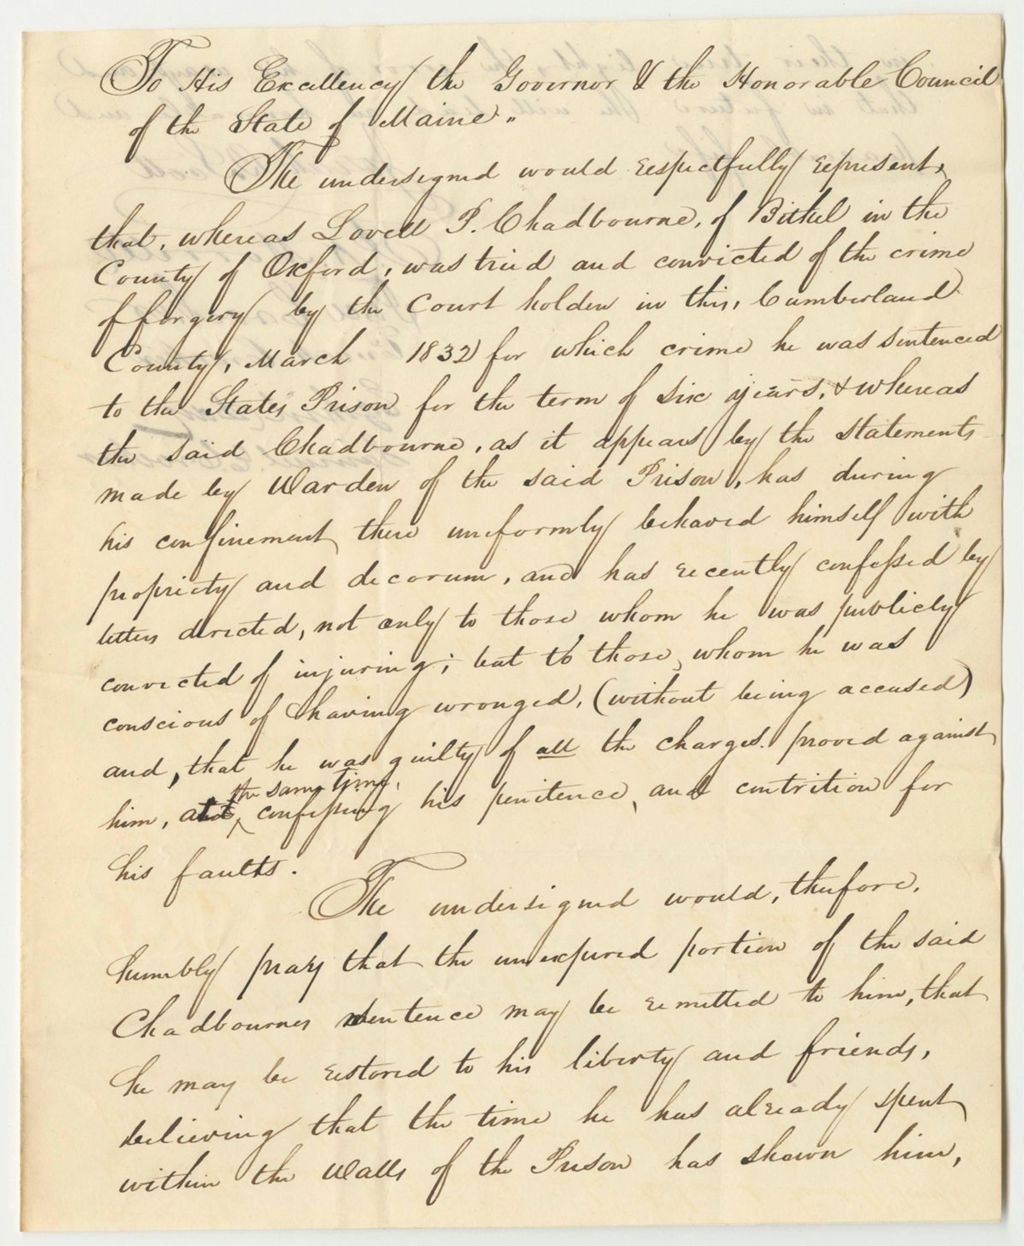 To His Excellency the Governor & the Honorable Council
of the State of Maine.,
The undersigned would respectfully represent,
that, whereas Lovell P. Chadbourne, of Bethel in the
County of Oxford, was tried and convicted of the crime
of forgery by the Court holden in this, Cumberland
County, March 1832 for which crime he was sentenced
to the States Prison for the term of six years, & whereas
the said Chadbourne, as it appears by the statements
made by Warden of the said Prison, has during
his confinement there uniformly behaved himself with
propriety and decorum, and has recently confessed by
letters directed, not only to those whom he was publicly
convicted of injuring; but to those, whom he was
conscious of having wronged, (without being accused)
and, that he was guilty of all the charges proved against
him, at the same time, confessing his penitence, and contrition for
his faults.
The undersigned would, therefore,
humbly pray that the unexpired portion of the said
Chadbournes sentence may be remitted to him, that
he may be restored to his liberty and friends,
believing that the time he has already spent
within the Walls of the Prison has shown him,